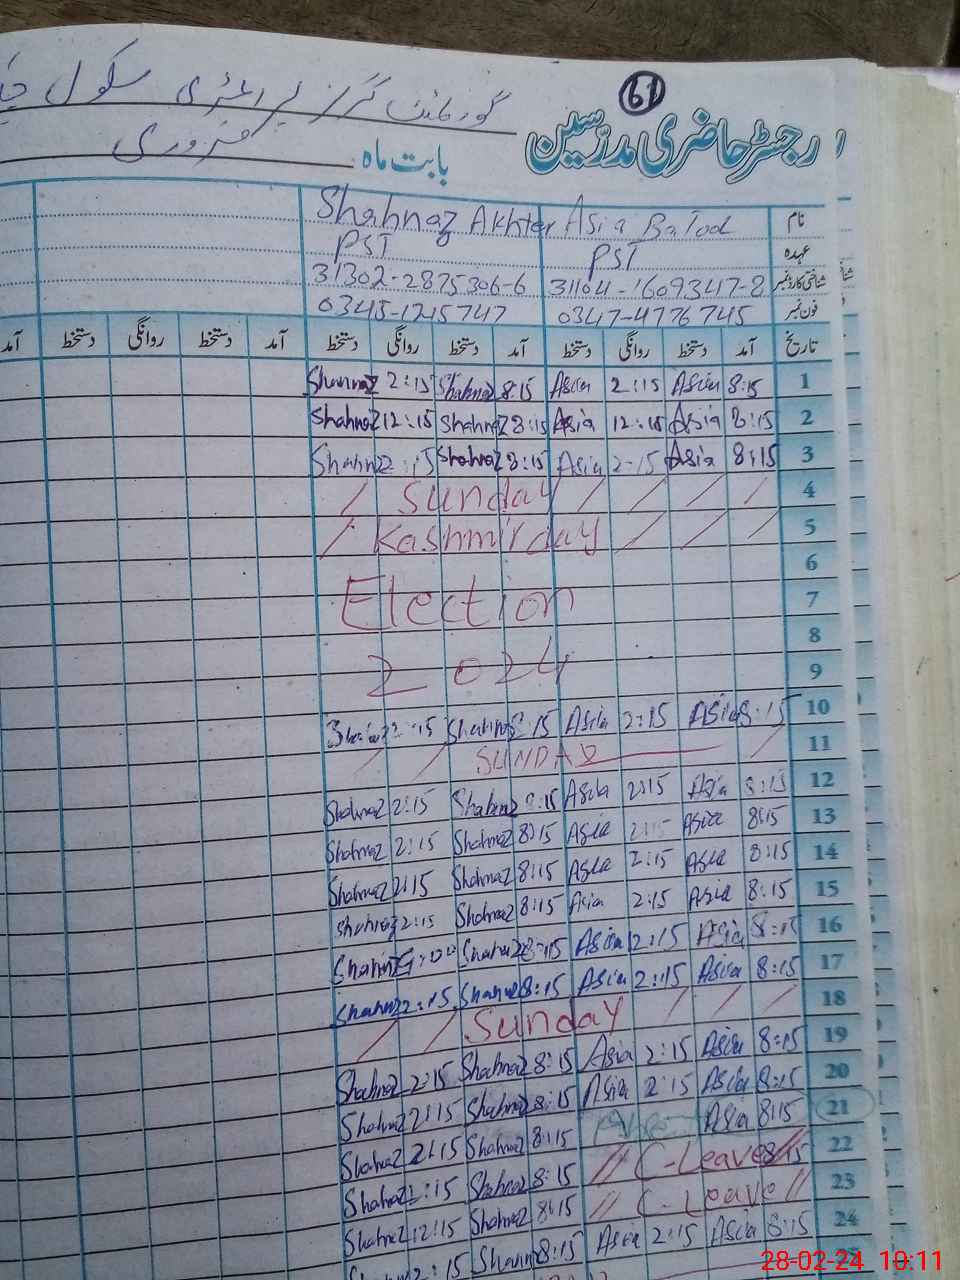 61
رجسٹر حاضری مدرسین
گورنمنٹ گرلز پرائمری سکول
بابت ماہ فروری
نام Asia Batool Shahnaz Akhter
عہدہ PST PST
شناختی کارڈ نمبر 31104-1609347-8 31302-2875306-6
فون نمبر 0347-4776745 0345-1215747
تاریخ آمد دستخط روانگی دستخط آمد دستخط روانگی دستخط آمد دستخط روانگی دستخط آمد
1 8:15 Asia 2:15 Asia 8:15 Shahnaz 2:15 Shahnaz
2 8:15 Asia 12:15 Asia 8:15 Shahnaz 12:15 Shahnaz
3 8:15 Asia 2:15 Asia 8:15 Shahnaz 2:15 Shahnaz
4 Sunday
5 Kashmir day
6
7 Election
8
9 2024
10 8:15 Asia 2:15 Asia 8:15 Shahnaz 2:15 Shahnaz
11 SUNDAY
12 8:15 Asia 2:15 Asia 8:15 Shahnaz 2:15 Shahnaz
13 8:15 Asia 2:15 Asia 8:15 Shahnaz 2:15 Shahnaz
14 8:15 Asia 2:15 Asia 8:15 Shahnaz 2:15 Shahnaz
15 8:15 Asia 2:15 Asia 8:15 Shahnaz 2:15 Shahnaz
16 8:15 Asia 2:15 Asia 8:15 Shahnaz
17 8:15 Asia 2:15 Asia 8:15 Shahnaz 2:15 Shahnaz
18 Sunday
19 8:15 Asia 2:15 Asia 8:15 Shahnaz 2:15 Shahnaz
20 8:15 Asia 2:15 Asia 8:15 Shahnaz 2:15 Shahnaz
21 8:15 Asia 8:15 Shahnaz 2:15 Shahnaz
22 8:15 C-Leave 8:15 Shahnaz 2:15 Shahnaz
23 C-Leave 8:15 Shahnaz 12:15 Shahnaz
24 8:15 Asia 2:15 Asia 8:15 Shahnaz 2:15 Shahnaz
25
28-02-24 10:11